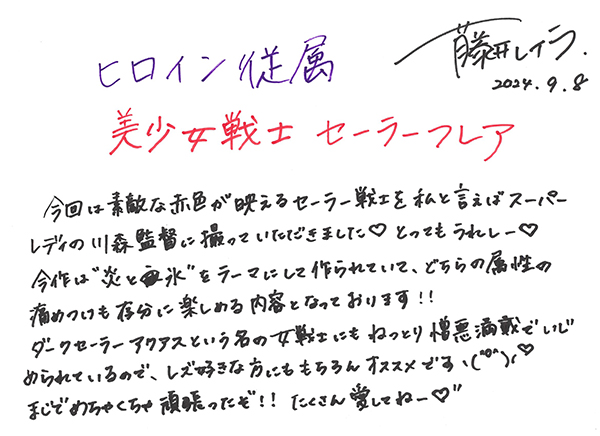 藤井レイラ.
2024.9.8
ヒロイン従属
美少女戦士 セーラーフレア
今回は素敵な赤色が映えるセーラー戦士を私と言えばスーパー
レディの川森監督に撮っていただきました♡とってもうれしー♡
今作は"炎と氷"をテーマにして作られていて、どちらの属性の
痛めつけも存分に楽しめる内容となっております!!
ダークセーラーアクアスという名の女戦士にもねっとり憎悪満載でいじ
められているので、レズ好きな方にももちろんオススメです、(^o^)♡
まじでめちゃくちゃ頑張ったぞ!!たくさん愛してねー♡"